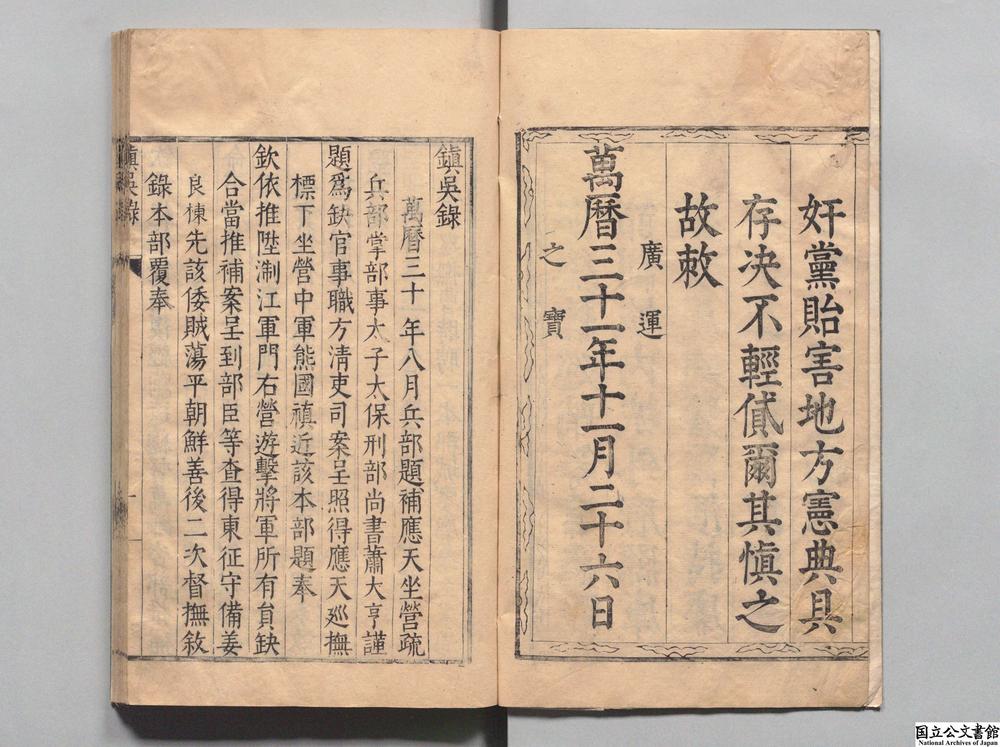 奸黨貽害地方憲典具
存决不輕貸爾其慎之
故敕
廣運
萬曆三十一年十一月二十六日
之寶
鎮吳錄
萬曆三十年八月兵部題補應天坐營疏
兵部掌部事太子太保刑部尚書蕭大亨謹
題爲缺官事職方清吏司案呈照得應天廵撫
標下坐營中軍熊國禎近該本部題奉
欽依推陞淛江軍門右營遊擊將軍所有員缺
合當推補案呈到部臣等查得東征守備姜
良棟先該倭賊蕩平朝鮮善後二次督撫敘
錄本部覆奉
鎮吳錄
一
国立公文書館
National Archives of Japan